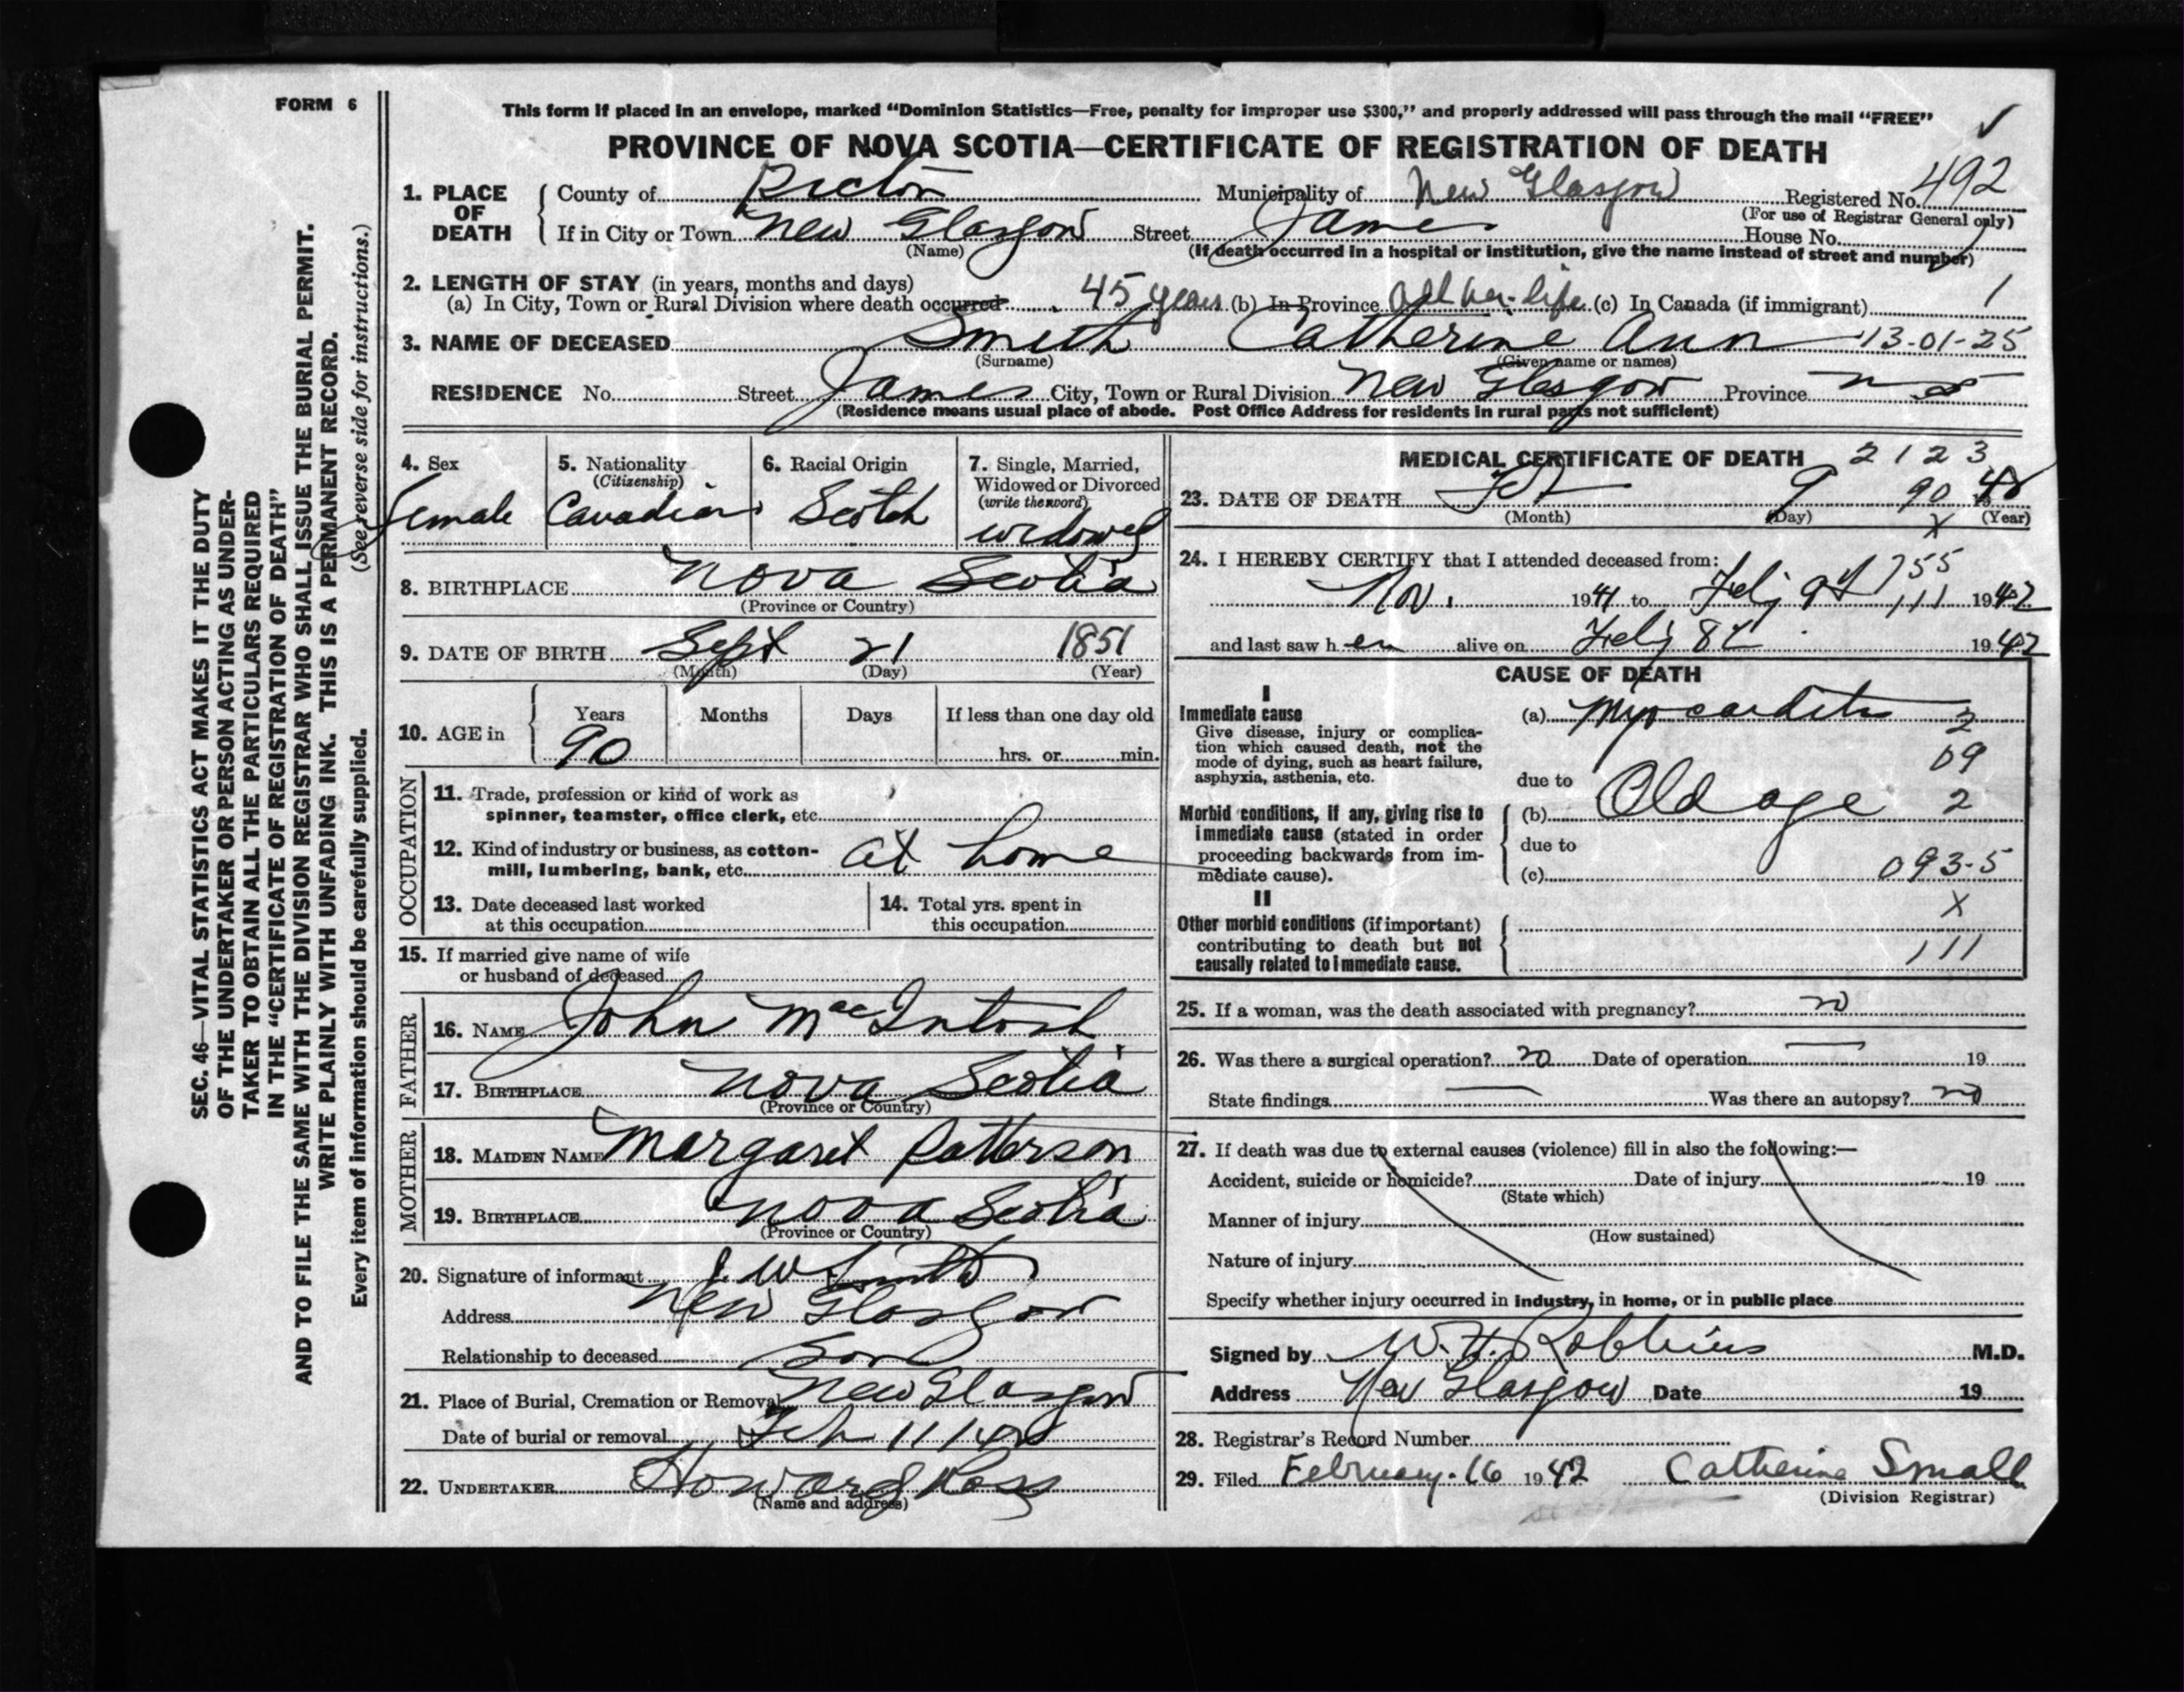 FORM 6
This form if placed in an envelope, marked “Dominion Statistics—Free, penalty for improper use $300,” and properly addressed will pass through the mail “FREE”
PROVINCE OF NOVA SCOTIA—CERTIFICATE OF REGISTRATION OF DEATH
1. PLACE OF DEATH County of Pictou Municipality of New Glasgow Registered No. 492
(For use of Registrar General only)
If in City or Town New Glasgow Street James House No.
(Name) (If death occurred in a hospital or institution, give the name instead of street and number)
2. LENGTH OF STAY (in years, months and days)
(a) In City, Town or Rural Division where death occurred 45 years (b) In Province all her life (c) In Canada (if immigrant) 1
3. NAME OF DECEASED Smith Catherine Ann 13-01-25
(Surname) (Given name or names)
RESIDENCE No. Street James City, Town or Rural Division New Glasgow Province N S
(Residence means usual place of abode. Post Office Address for residents in rural parts not sufficient)
4. Sex
Female
5. Nationality
(Citizenship)
Canadian
6. Racial Origin
Scotch
7. Single, Married,
Widowed or Divorced
(write the word)
widowed
8. BIRTHPLACE Nova Scotia
(Province or Country)
9. DATE OF BIRTH Sept 21 1851
(Month) (Day) (Year)
10. AGE in Years Months Days If less than one day old
90 hrs. or min.
OCCUPATION
11. Trade, profession or kind of work as
spinner, teamster, office clerk, etc.
12. Kind of industry or business, as cotton-
mill, lumbering, bank, etc. at home
13. Date deceased last worked
at this occupation
14. Total yrs. spent in
this occupation
15. If married give name of wife
or husband of deceased
FATHER
16. NAME John MacIntosh
17. BIRTHPLACE Nova Scotia
(Province or Country)
MOTHER
18. MAIDEN NAME Margaret Patterson
19. BIRTHPLACE Nova Scotia
(Province or Country)
20. Signature of informant J. W Smith
Address New Glasgow
Relationship to deceased Son
21. Place of Burial, Cremation or Removal New Glasgow
Date of burial or removal Feb 11
22. UNDERTAKER Howard Ross
(Name and address)
MEDICAL CERTIFICATE OF DEATH 2123
23. DATE OF DEATH Feb 9 90 19
(Month) (Day) X (Year)
24. I HEREBY CERTIFY that I attended deceased from:
755
Nov. 1941 to Feby 9th 111 1942
and last saw her alive on Feby 8th 1942
CAUSE OF DEATH
I
Immediate cause
Give disease, injury or complica-
tion which caused death, not the
mode of dying, such as heart failure,
asphyxia, asthenia, etc.
(a) Myocarditis 2
09
due to
Morbid conditions, if any, giving rise to
immediate cause (stated in order
proceeding backwards from im-
mediate cause).
(b) Old age 2
due to
(c) 093-5
II
X
Other morbid conditions (if important)
contributing to death but not
causally related to immediate cause.
111
25. If a woman, was the death associated with pregnancy? no
26. Was there a surgical operation? no Date of operation — 19
State findings — Was there an autopsy? no
27. If death was due to external causes (violence) fill in also the following:—
Accident, suicide or homicide? Date of injury 19
(State which)
Manner of injury
(How sustained)
Nature of injury
Specify whether injury occurred in industry, in home, or in public place
Signed by W. H. Robbins M.D.
Address New Glasgow Date 19
28. Registrar's Record Number
29. Filed February 16 1942 Catherine Small
(Division Registrar)
SEC. 46—VITAL STATISTICS ACT MAKES IT THE DUTY
OF THE UNDERTAKER OR PERSON ACTING AS UNDER-
TAKER TO OBTAIN ALL THE PARTICULARS REQUIRED
IN THE “CERTIFICATE OF REGISTRATION OF DEATH”
AND TO FILE THE SAME WITH THE DIVISION REGISTRAR WHO SHALL ISSUE THE BURIAL PERMIT.
WRITE PLAINLY WITH UNFADING INK. THIS IS A PERMANENT RECORD.
Every item of information should be carefully supplied. (See reverse side for instructions.)